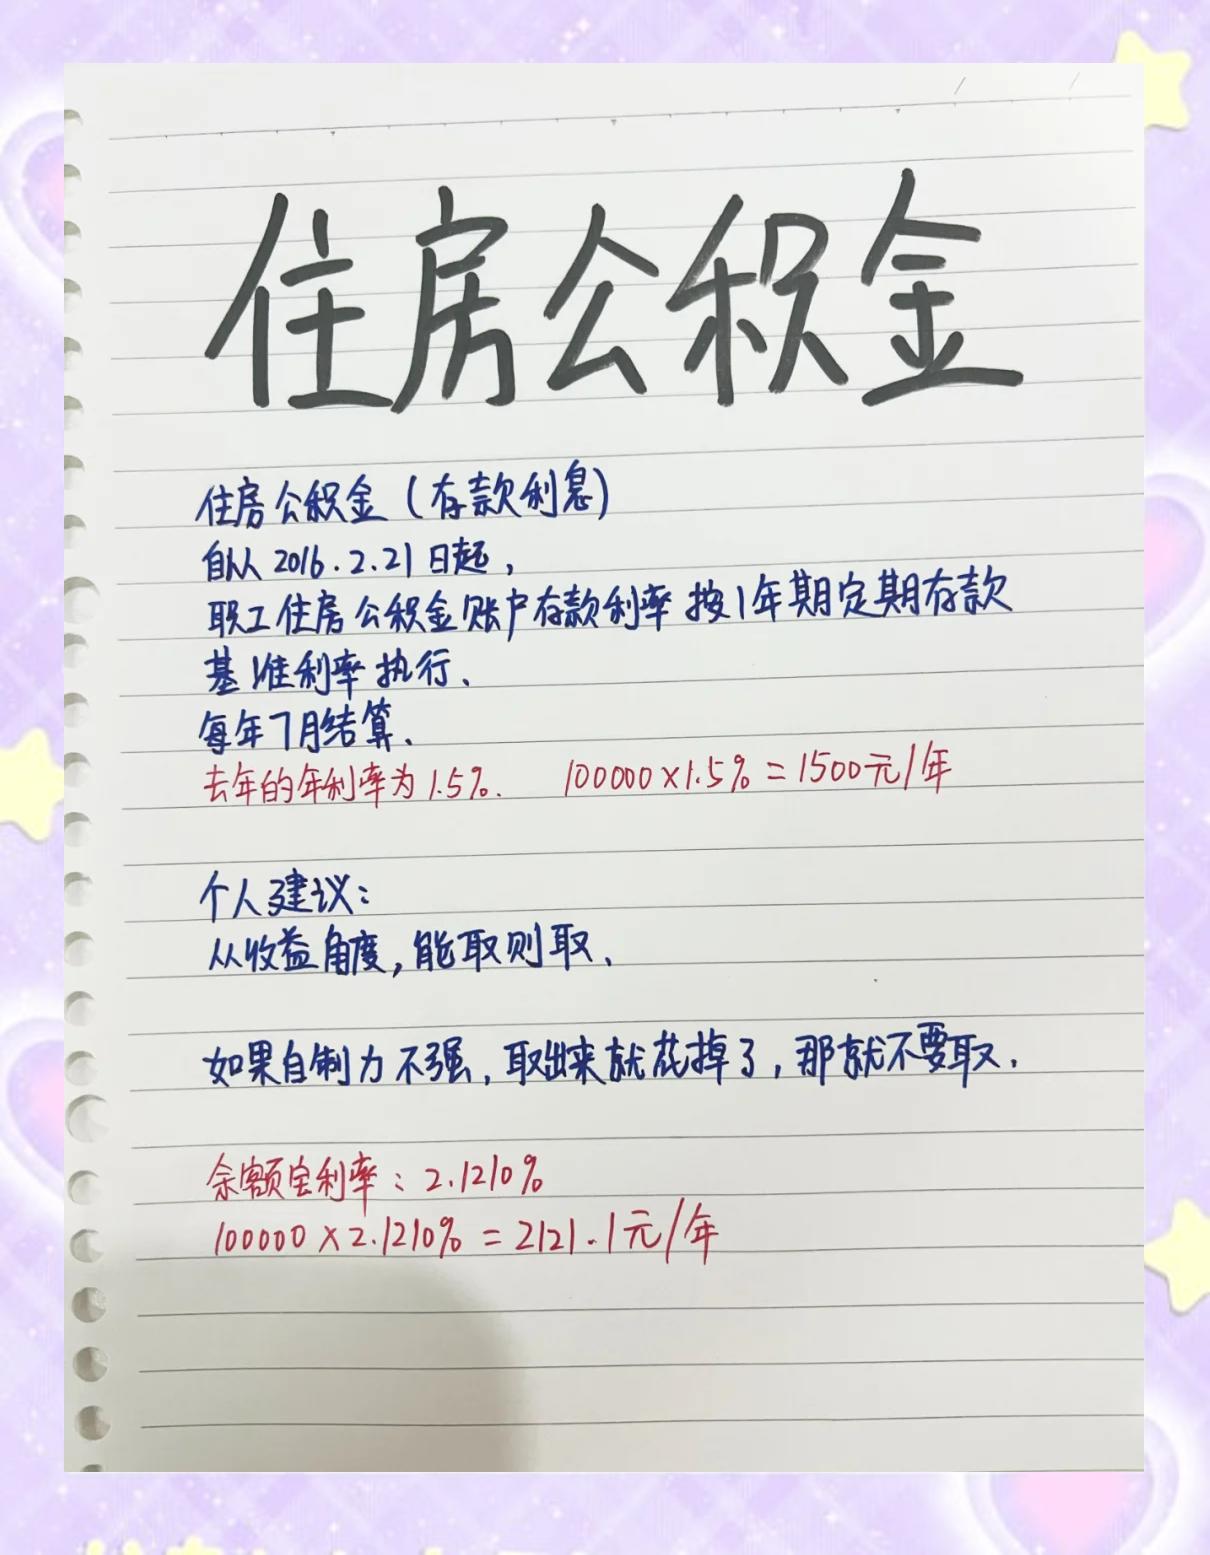 住房公积金
住房公积金（存款利息）
自从2016.2.21日起，
职工住房公积金账户存款利率按1年期定期存款
基准利率执行、
每年7月结算、
去年的年利率为1.5%. 100000×1.5%=1500元/年
个人建议：
从收益角度，能取则取、
如果自制力不强，取出来就花掉了，那就不要取.
余额宝利率：2.1210%
100000×2.1210%=2121.1元/年